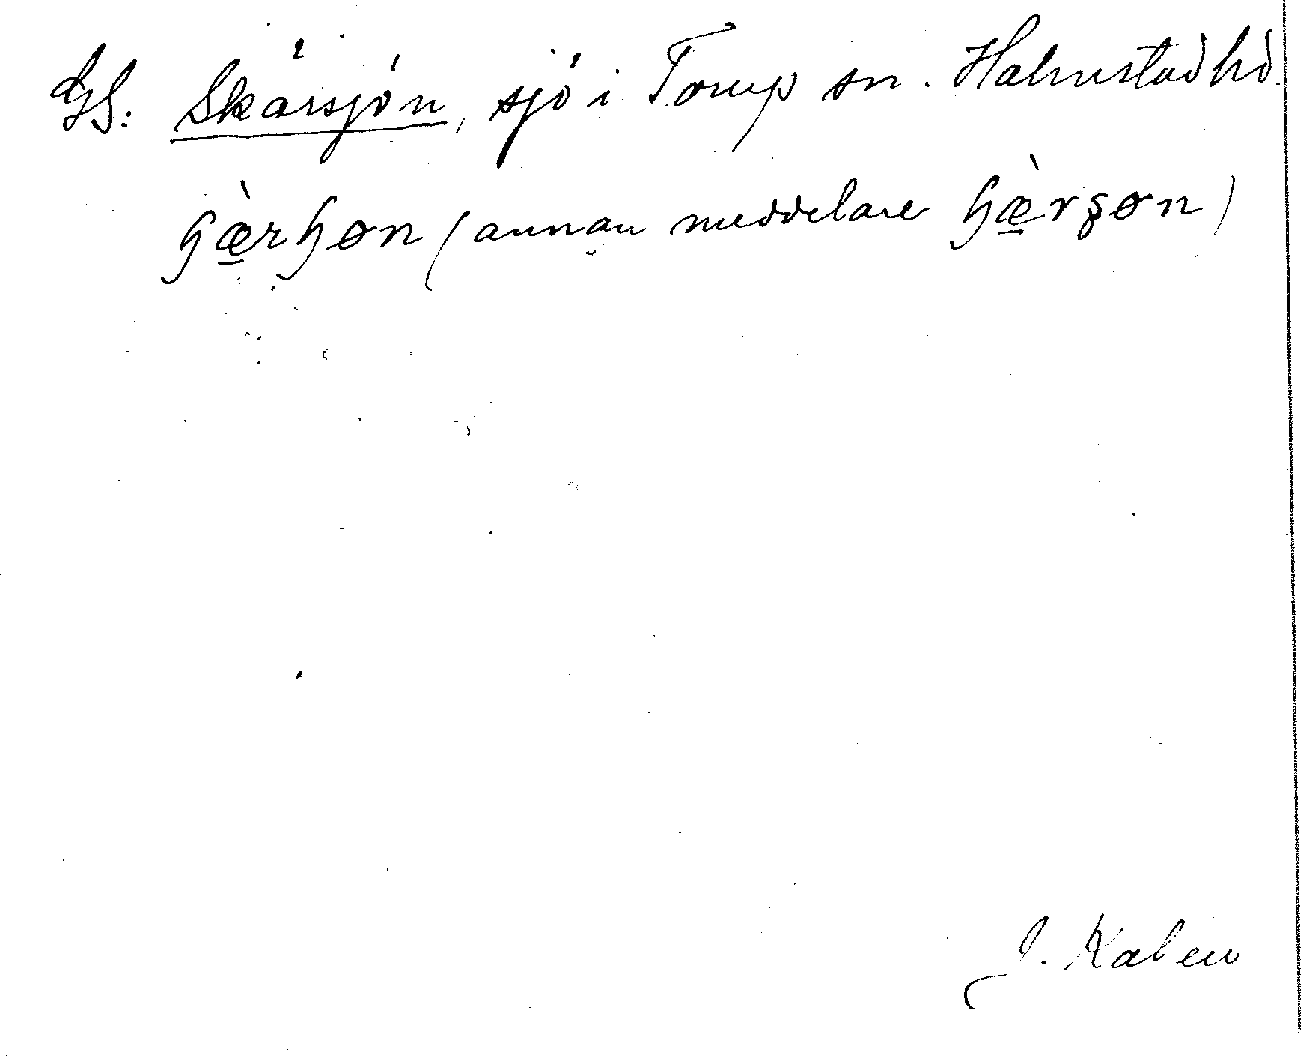 GS: Skärsjön, sjö i Torup sn. Halmstad hd.
ɧæ̀rɧøn (annan meddelare ɧæ̀rʂøn)
J. Kalén